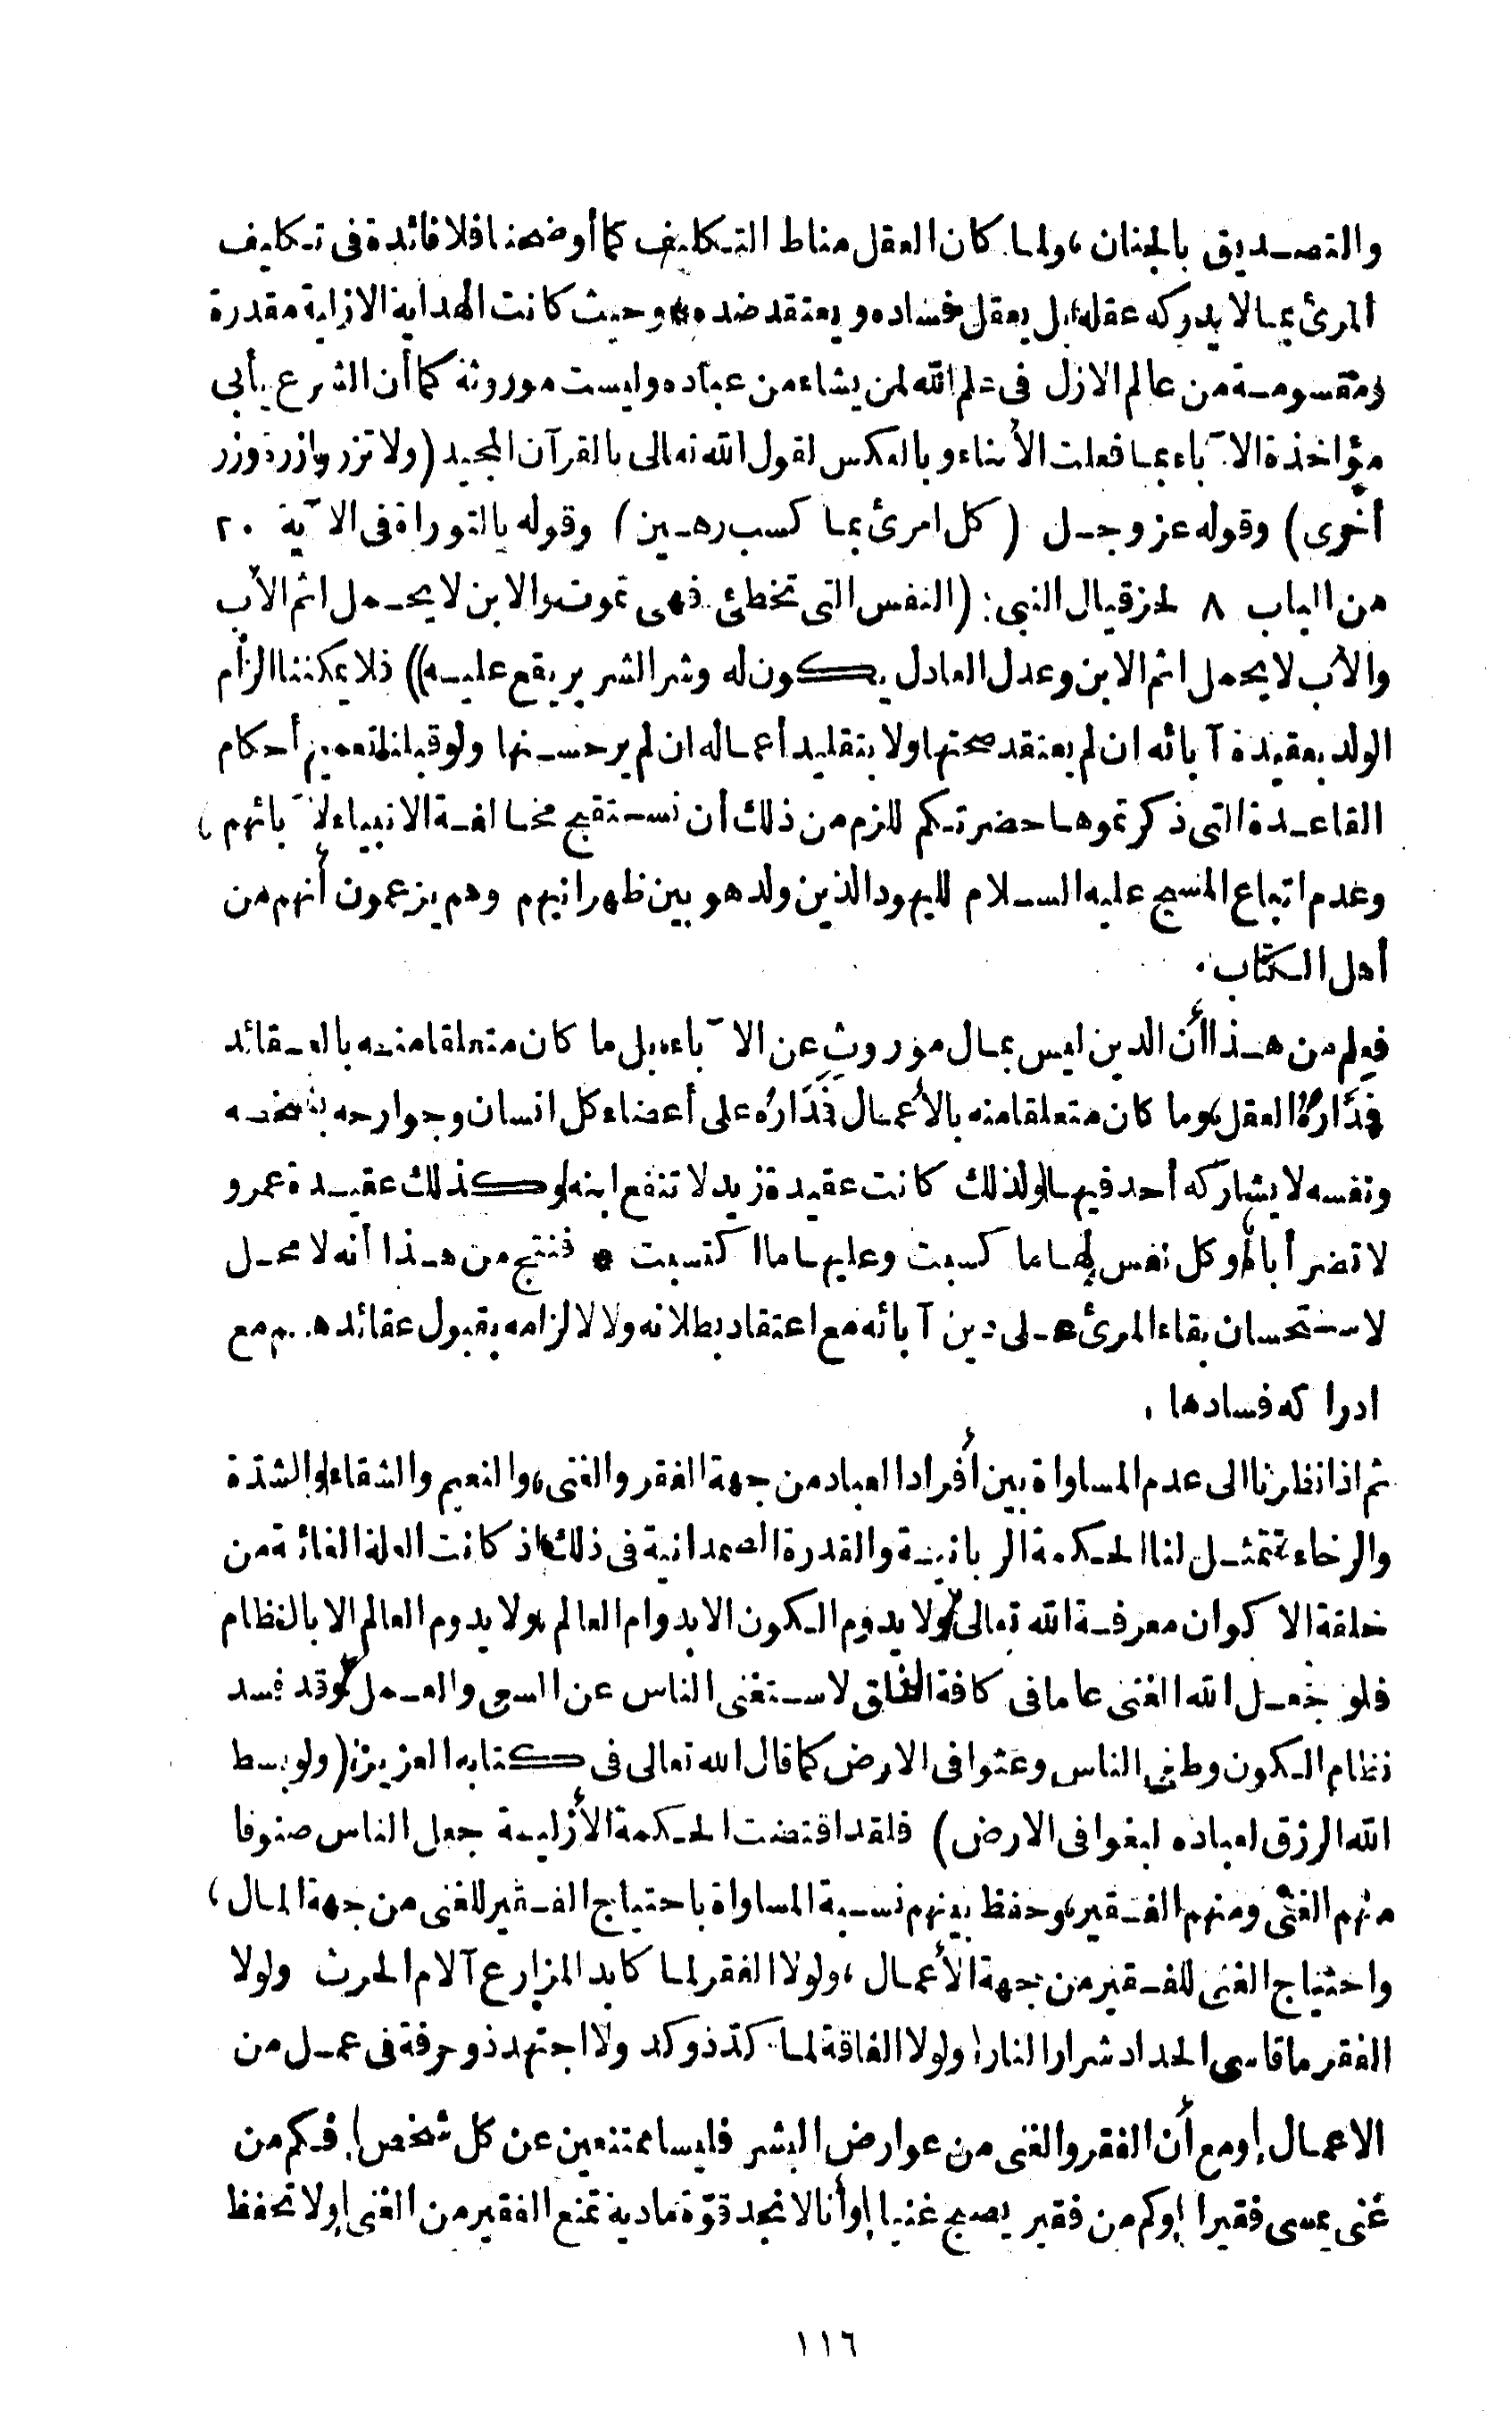 والتصديق بالجنان، ولما كان العقل مناط التكليف كما أوضحنا فلا فائدة فى تكليف
المرئ بما لا يدركه عقله بل يعقل فساده ويعتقد ضده * وحيث كانت الهداية الازلية مقدرة
ومقسومة من عالم الازل فى علم الله لمن يشاء من عباده وليست موروثة كما أن الشرع يأبى
مؤاخذة الآباء بما فعلت الأبناء وبالعكس لقول الله تعالى بالقرآن المجيد (ولا تزر وازرة وزر
أخرى) وقوله عز وجل (كل امرئ بما كسب رهين) وقوله بالتوراة فى الآية ٢٠
من الباب ٨ لحزقيال النبى: (النفس التى تخطئ فهى تموت والابن لا يحمل اثم الأب
والأب لا يحمل اثم الابن وعدل العادل يكون له وشر الشرير يقع عليه)) فلا يمكننا الزام
الولد بعقيدة آبائه ان لم يعتقد صحتها ولا بتقليد أعماله ان لم ير حسنها ولو قبلنا تعميم أحكام
القاعدة التى ذكرتموها حضرتكم للزم من ذلك أن نستقبح مخالفة الانبياء لآبائهم،
وعدم اتباع المسيح عليه السلام لليهود الذين ولد هو بين ظهرانيهم وهم يزعمون أنهم من
أهل الكتاب.
فعلم من هذا أن الدين ليس بمال موروث عن الآباء، بل ما كان متعلقا منه بالعقائد
فمداره العقل، وما كان متعلقا منه بالأعمال فمداره على أعضاء كل انسان وجوارحه بشخصه
ونفسه لا يشاركه أحد فيها ولذلك كانت عقيدة زيد لا تنفع ابنه وكذلك عقيدة عمرو
لا تضر أباه وكل نفس لها ما كسبت وعليها ما اكتسبت * فنتج من هذا أنه لا محل
لاستحسان بقاء المرئ على دين آبائه مع اعتقاد بطلانه ولا لالزامه بقبول عقائدهم مع
ادراكه فسادها.
ثم اذا نظرنا الى عدم المساواة بين أفراد العباد من جهة الفقر والغنى، والنعيم والشقاء والشدة
والرخاء تتمثل لنا الحكمة الربانية والقدرة الصمدانية فى ذلك اذ كانت العلة الغائة من
خلقة الاكوان معرفة الله تعالى ولا يدوم الكون الا بدوام العالم، ولا يدوم العالم الا بالنظام
فلو جعل الله الغنى عاما فى كافة الخلق لاستغنى الناس عن السعى والعمل وقد فسد
نظام الكون وطغى الناس وعثوا فى الارض كما قال الله تعالى فى كتابه العزيز: (ولو بسط
الله الرزق لعباده لبغوا فى الارض) فلقد اقتضت الحكمة الأزلية جعل الناس صنوفا
منهم الغنى ومنهم الفقير، وحفظ بينهم نسبة المساواة باحتياج الفقير للغنى من جهة المال،
واحتياج الغنى للفقير من جهة الأعمال، ولولا الفقر لما كابد المزارع آلام الحرث ولولا
الفقر ما قاسى الحداد شرار النار! ولولا الفاقة لما كد ذو كد ولا اجتهد ذو حرفة فى عمل من
الاعمال! ومع أن الفقر والغنى من عوارض البشر فليسا ممتنعين عن كل شخص! فكم من
غنى يمسى فقيرا! وكم من فقير يصبح غنيا! وأنا لا نجد قوة مادية تمنع الفقير من الغنى! ولا تحفظ
١١٦